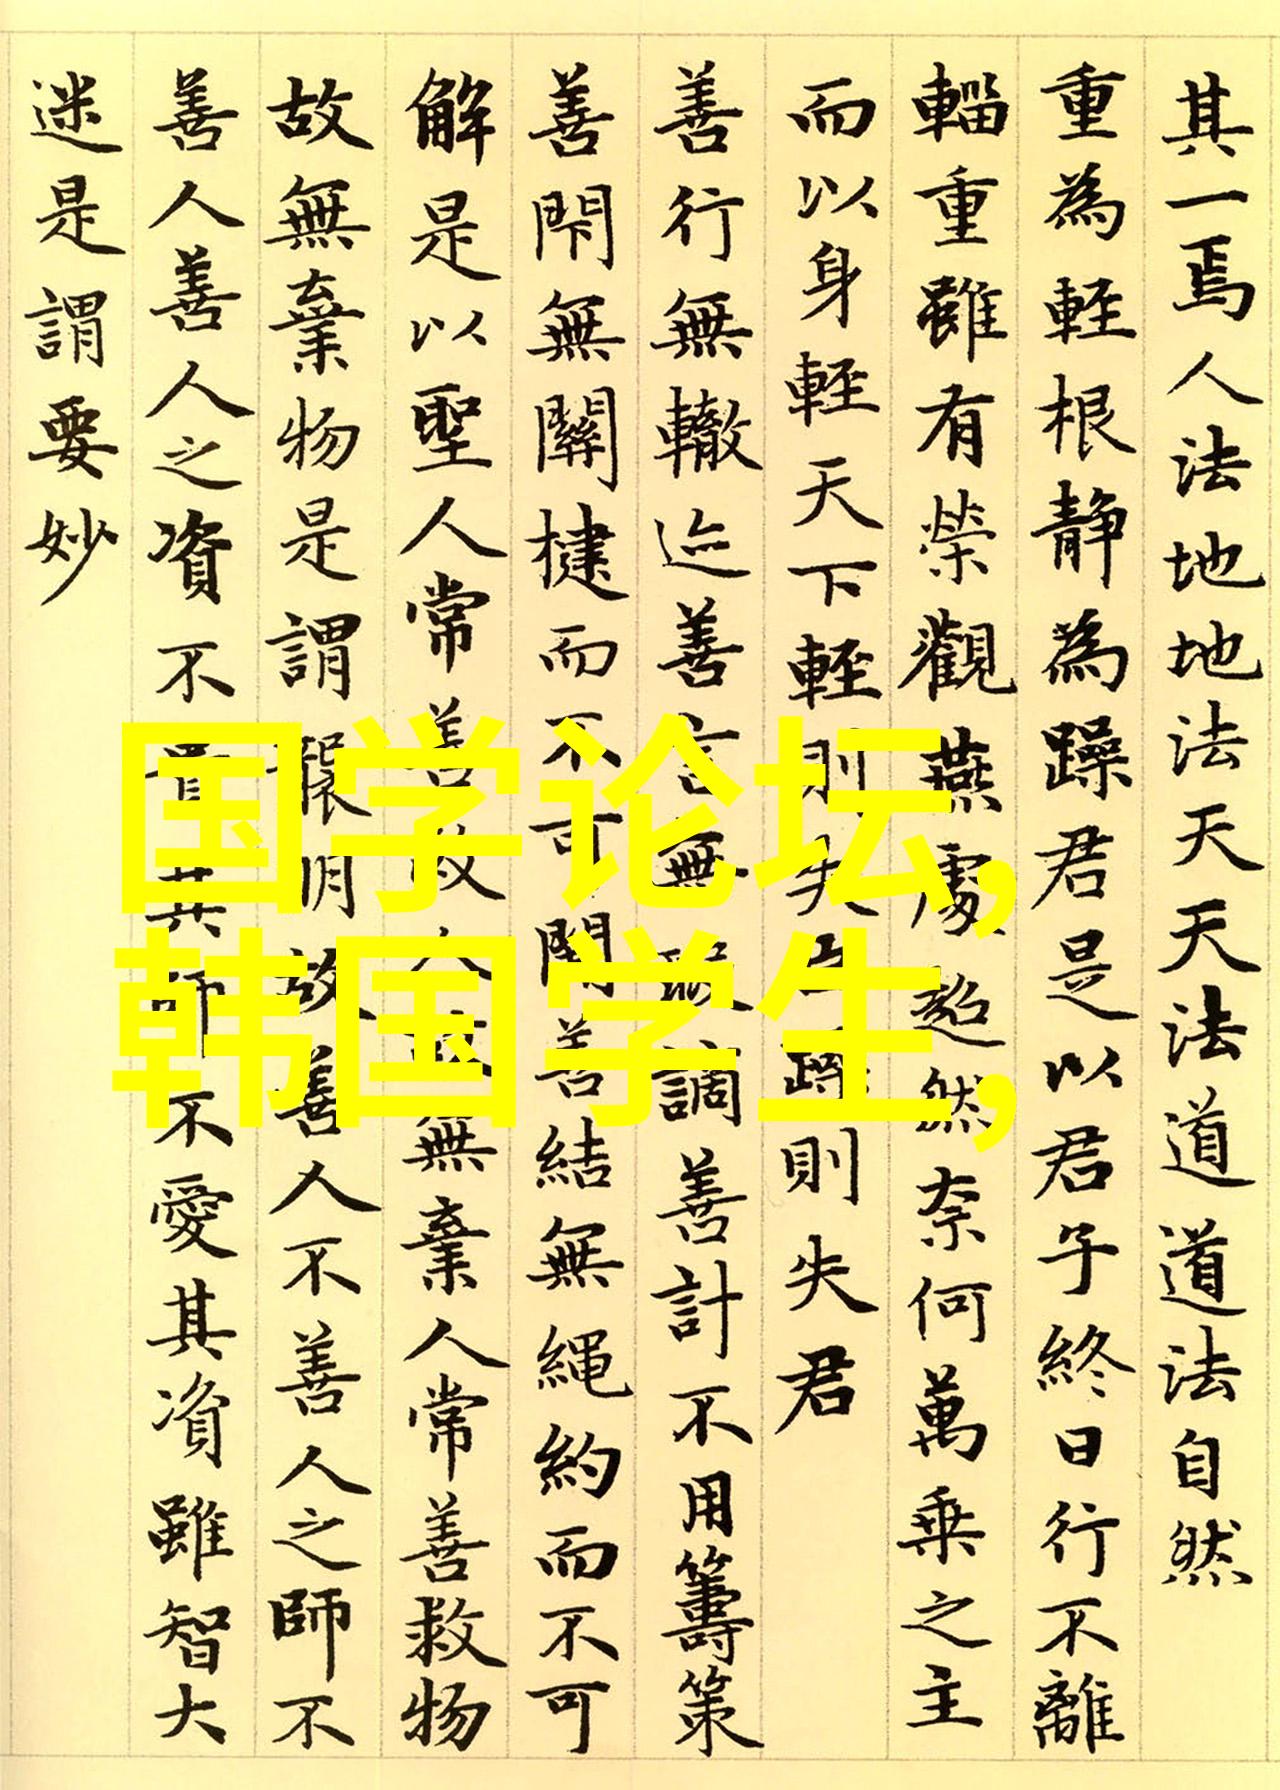 其一焉人法地地法天天法道道法自然
重為輕根静為躁君是以君子終日行不離
輜重雖有榮觀燕處超然奈何萬乘之主
而以身輕天下輕則失臣躁則失君
善行無轍迹善言無瑕謫善計不用籌策
善閇無關楗而不可開善結無繩約而不可
解是以聖人常善救人故無棄人常善救物
故無棄物是謂襲明故善人不善人之師不
善人善人之資不貴其師不愛其資雖智大
迷是謂要妙
国学论坛,
韩国学生,